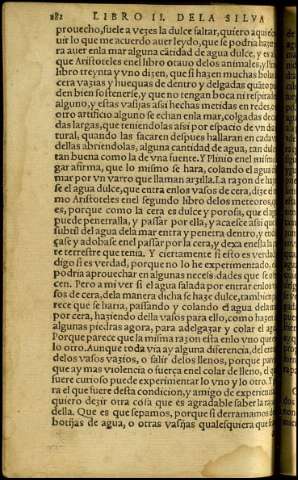 282 LIBRO II. DELA SILVA
prouecho, suele a vezes la dulce faltar, quiero aqui
uir lo que me acuerdo auer leydo, que se podria hazer
ra auer enla mar alguna cãtidad de agua dulce, y es
que Aristoteles enel libro otauo delos animales, y Plinio
libro treynta y vno dizen, que si hazen muchas bolas
cera vazias y huequas de dentro y delgadas quãto
den bien sostenerse, y que no tengan boca ni respirade
alguno, y estas vasijas assi hechas metidas en redes, o
otro artificio alguno se echan enla mar, colgadas de
das largas, que teniendolas assi por espacio de vn dia
tural, quando las sacaren despues hallaran en cada
dellas abriendolas, alguna cantidad de agua, tan dulce
tan buena como la de vna fuente. Y Plinio enel mismo
gar afirma, que lo mismo se hara, colando el agua
mar por vn varro que llaman argilla. La razon de
se el agua dulce, que entra enlos vasos de cera, dize el
mo Aristoteles enel segundo libro delos meteoros, q
es, porque como la cera es dulce y porosa, que da
puede penetralla, y passar por ella, y acaesce assi que
subtil del agua dela mar entra y penetra dentro, y
gase y adobase enel passar por la cera, y dexa enella
te terrestre que tenia. Y ciertamente si esto es verdad
digo si es verdad, porque no lo he experimentado,
podria aprouechar en algunas necessidades que se
cen. Pero a mi ver si el agua salada por entrar enlos
sos de cera, dela manera dicha se haze dulce, tambien
rece que se haria, passando y colando el agua dela
por cera, haziendo della vasos para ello, como hazen
algunas piedras agora, para adelgazar y colar el agua
Porque parece que la misma razon esta enlo vno que
lo otro. Aunque toda via ay alguna diferencia, del entrar
delos vasos vazios, o salir delos llenos, porque parece
que ay mas violencia o fuerça enel colar de lleno, el
fuere curioso puede experimentar lo vno y lo otro. Y
ra el que fuere desta condicion, y amigo de experiencia
quiero dezir otra cosa que es agradable saber la razon
della. Que es que sepamos, porque si derramamos de
botijas de agua, o otras vasijas qualesquiera que